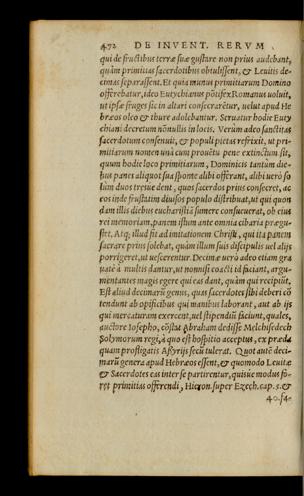 472 DE INVENT. RERVM
qui de fructibus terræ suæ gustare non prius audebant,
quàm primitias sacerdotibus obtulissent, & Leuitis de-
cimas separassent. Et quia munus primitiarum Domino
offerebatur, ideo Eutychianus põtifex Romanus uoluit,
ut ipsæ fruges sic in altari consecrarẽtur, uelut apud He
bræos oleo & thure adolebantur. Seruatur hodie Euty
chiani decretum nõnullis in locis. Verùm adeo sanctitas
sacerdotum consenuit, & populi pietas refrixit, ut pri-
mitiarum nomen unà cum prouẽtu pene extinctum sit,
quum hodie loco primitiarum, Dominicis tantùm die-
bus panes aliquot sua sponte alibi offerant, alibi uerò so
lùm duos tresue dent, quos sacerdos prius consecret, ac
eos inde frustatim diuisos populo distribuat, ut qui quon
dam illis diebus eucharistiã sumere consueuerat, ob eius
rei memoriam, panem istum ante omnia cibaria prægu-
stet. Atq; illud fit ad imitationem Christi, qui ita panem
sacrare prius solebat, quàm illum suis discipulis uel alijs
porrigeret, ut uescerentur. Decimæ uerò adeo etiam gra
uatè à multis dantur, ut nonnisi coacti id faciant, argu-
mentantes magis egere qui eas dant, quàm qui recipiũt.
Est aliud decimarũ genus, quas sacerdotes sibi deberi cõ
tendunt ab opificibus qui manibus laborant, aut ab ijs
qui mercaturam exercent, uel stipendiũ faciunt, quales,
auctore Iosepho, cõstat Abraham dedisse Melchisedech
Solymorum regi, à quo est hospitio acceptus, ex præda
quam profligatis Assyrijs secũ tulerat. Quot autẽ deci-
marũ genera apud Hebræos essent, & quomodo Leuitæ
& Sacerdotes eas inter se partirentur, quisue modus fo-
ret primitias offerendi, Hieron. super Ezech. cap. 5. &
40. sa-